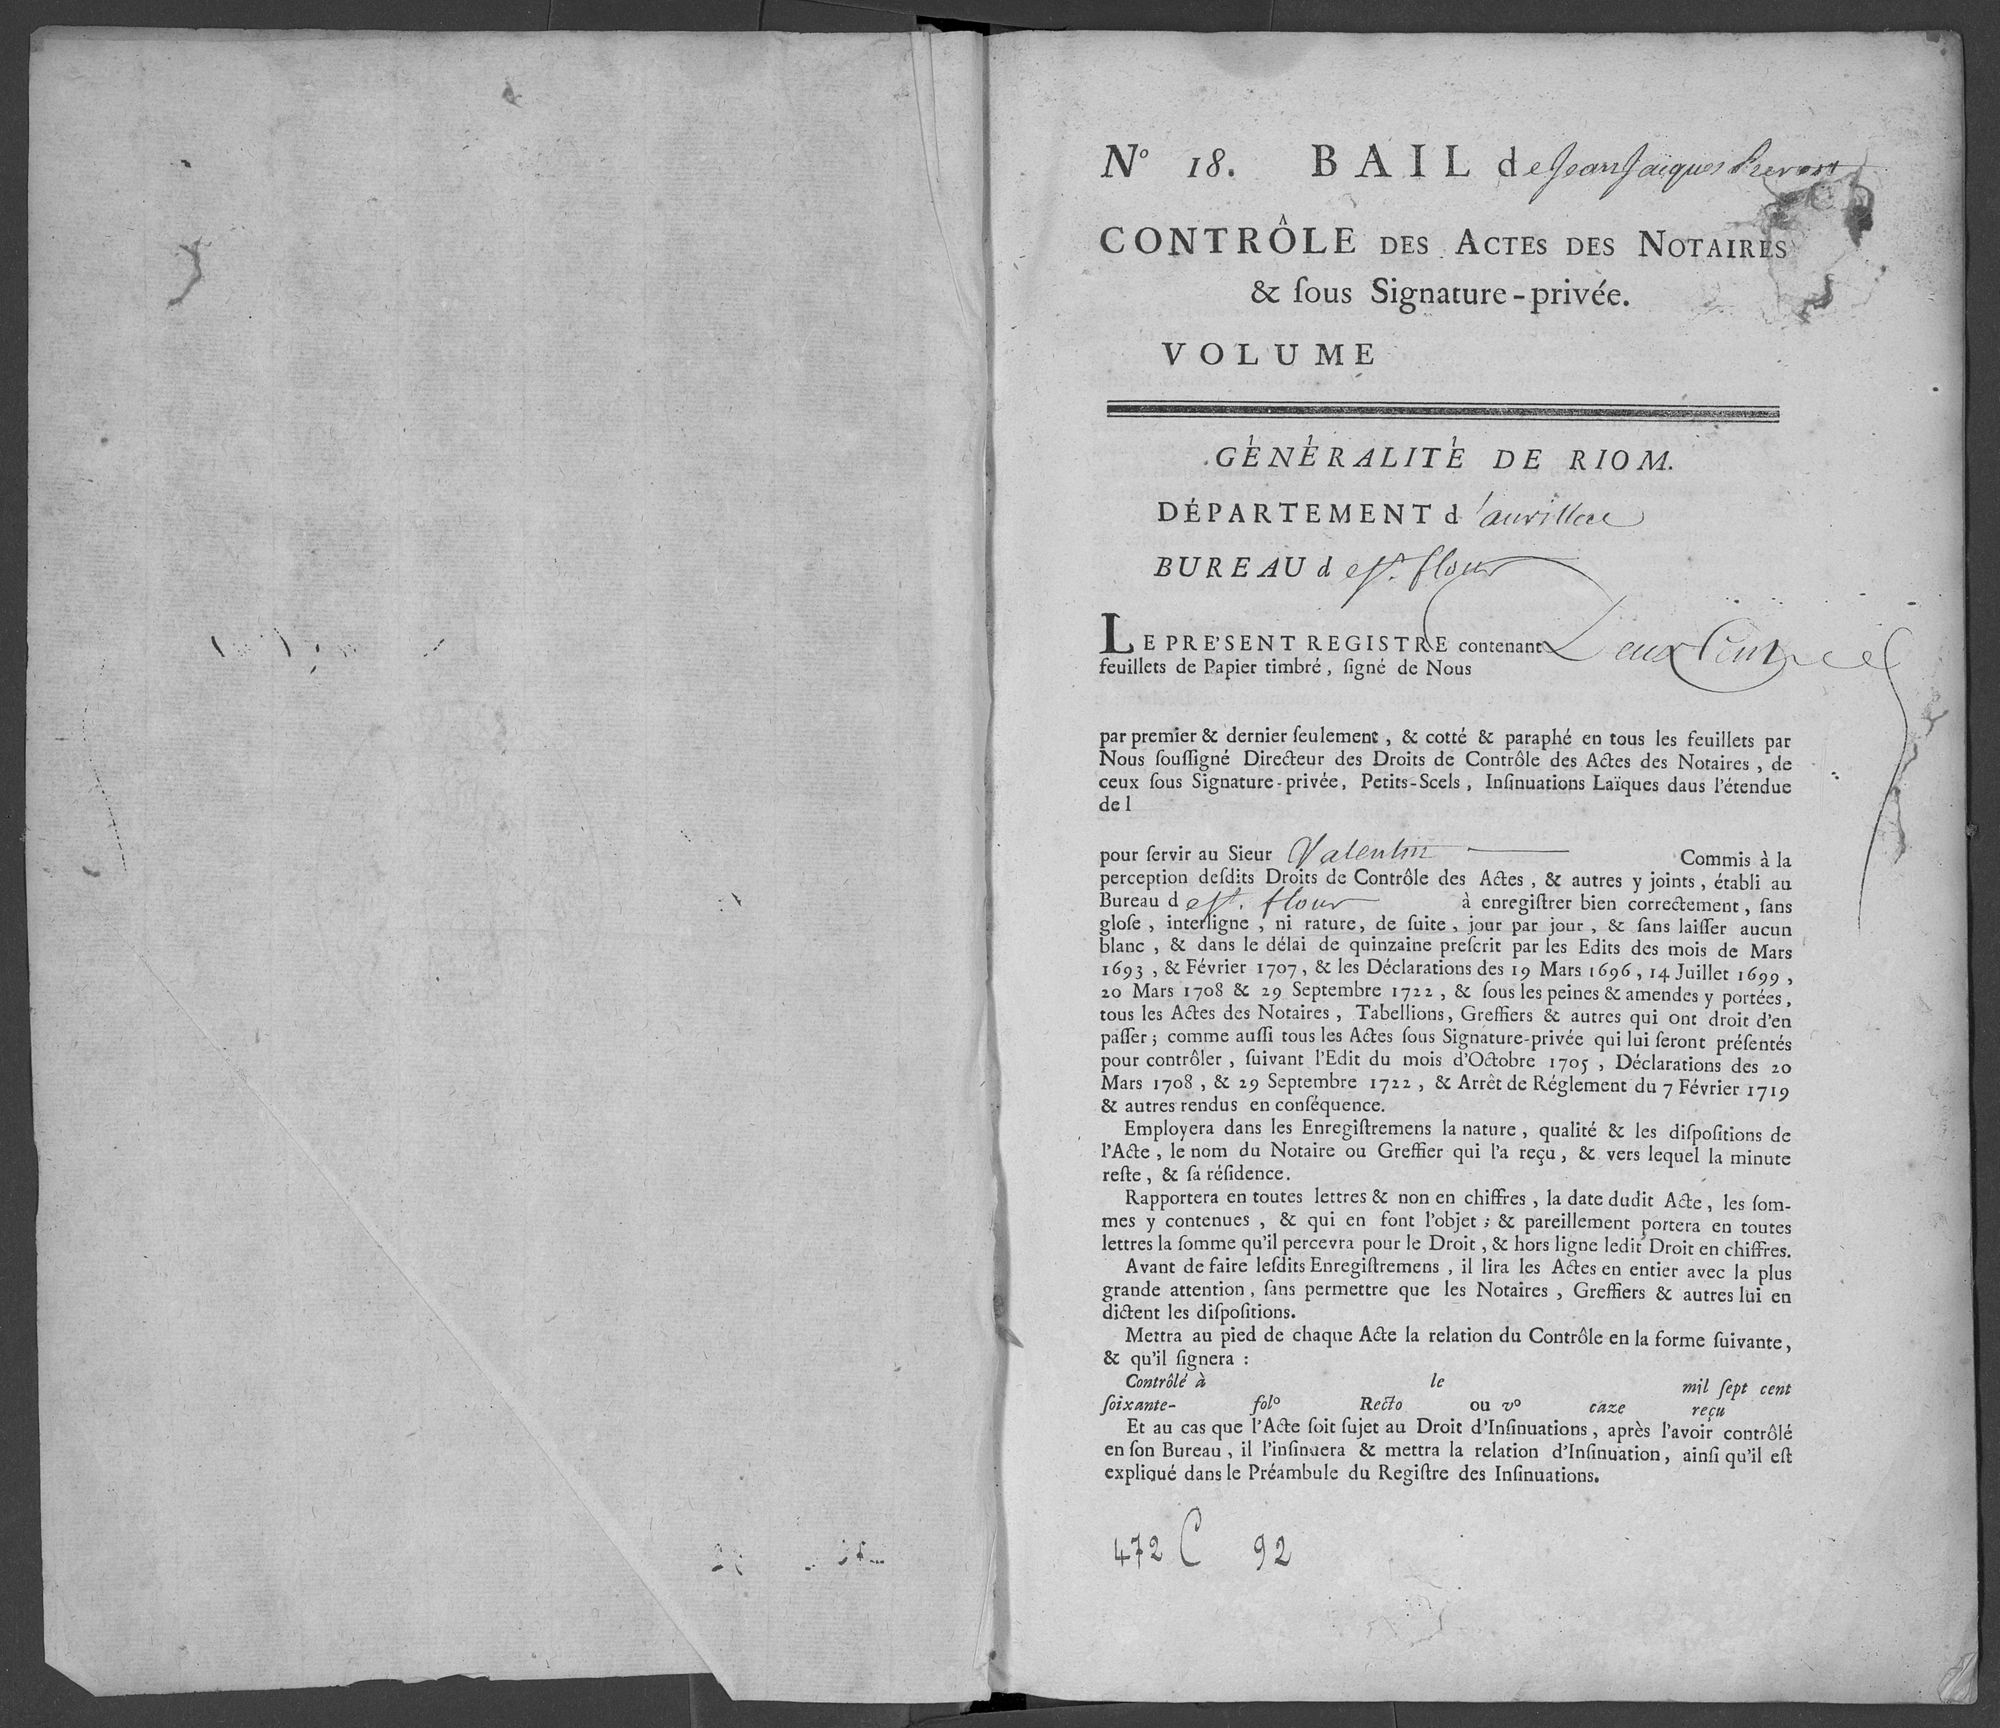 Nº 18. BAIL de Jean Jaiques Prevost
CONTRÔLE DES ACTES DES NOTAIRES
& ſous Signature-privée.
VOLUME
GÉNÉRALITÉ DE RIOM.
DÉPARTEMENT d'aurillac
BUREAU de St. flour
LE PRE'SENT REGISTRE contenant Deux Cent
feuillets de Papier timbré, ſigné de Nous
par premier & dernier ſeulement, & cotté & paraphé en tous les feuillets par
Nous ſouſſigné Directeur des Droits de Contrôle des Actes des Notaires, de
ceux ſous Signature-privée, Petits-Scels, Inſinuations Laïques daus l'étendue
de l
pour ſervir au Sieur Valentin Commis à la
perception deſdits Droits de Contrôle des Actes, & autres y joints, établi au
Bureau de St. flour à enregiſtrer bien correctement, ſans
gloſe, interligne, ni rature, de ſuite, jour par jour, & ſans laiſſer aucun
blanc, & dans le délai de quinzaine preſcrit par les Edits des mois de Mars
1693, & Février 1707, & les Déclarations des 19 Mars 1696, 14 Juillet 1699,
20 Mars 1708 & 29 Septembre 1722, & ſous les peines & amendes y portées,
tous les Actes des Notaires, Tabellions, Greffiers & autres qui ont droit d'en
paſſer; comme auſſi tous les Actes ſous Signature-privée qui lui ſeront préſentés
pour contrôler, ſuivant l'Edit du mois d'Octobre 1705, Déclarations des 20
Mars 1708, & 29 Septembre 1722, & Arrêt de Réglement du 7 Février 1719
& autres rendus en conſéquence.
Employera dans les Enregiſtremens la nature, qualité & les diſpoſitions de
l'Acte, le nom du Notaire ou Greffier qui l'a reçu, & vers lequel la minute
reſte, & ſa réſidence.
Rapportera en toutes lettres & non en chiffres, la date dudit Acte, les ſom-
mes y contenues, & qui en font l'objet; & pareillement portera en toutes
lettres la ſomme qu'il percevra pour le Droit, & hors ligne ledit Droit en chiffres.
Avant de faire leſdits Enregiſtremens, il lira les Actes en entier avec la plus
grande attention, ſans permettre que les Notaires, Greffiers & autres lui en
dictent les diſpoſitions.
Mettra au pied de chaque Acte la relation du Contrôle en la forme ſuivante,
& qu'il ſignera :
Contrôlé à le mil ſept cent
ſoixante- folº Recto ou vº caze reçu
Et au cas que l'Acte ſoit ſujet au Droit d'Inſinuations, après l'avoir contrôlé
en ſon Bureau, il l'inſinuera & mettra la relation d'Inſinuation, ainſi qu'il eſt
expliqué dans le Préambule du Regiſtre des Inſinuations.
472 C 92